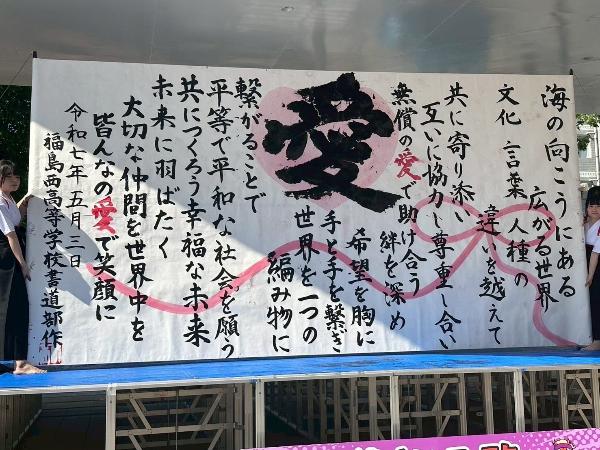 海の向こうにある
広がる世界
文化 言葉 人種の
違いを越えて
共に寄り添い
互いに協力し尊重し合い
無償の愛で助け合う
絆を深め
愛
希望を胸に
手と手を繋ぎ
世界を一つの
編み物に
繋がることで
平等で平和な社会を願う
共につくろう幸福な未来
未来に羽ばたく
大切な仲間を世界中を
皆んなの愛で笑顔に
令和七年五月三日
福島西高等学校書道部作